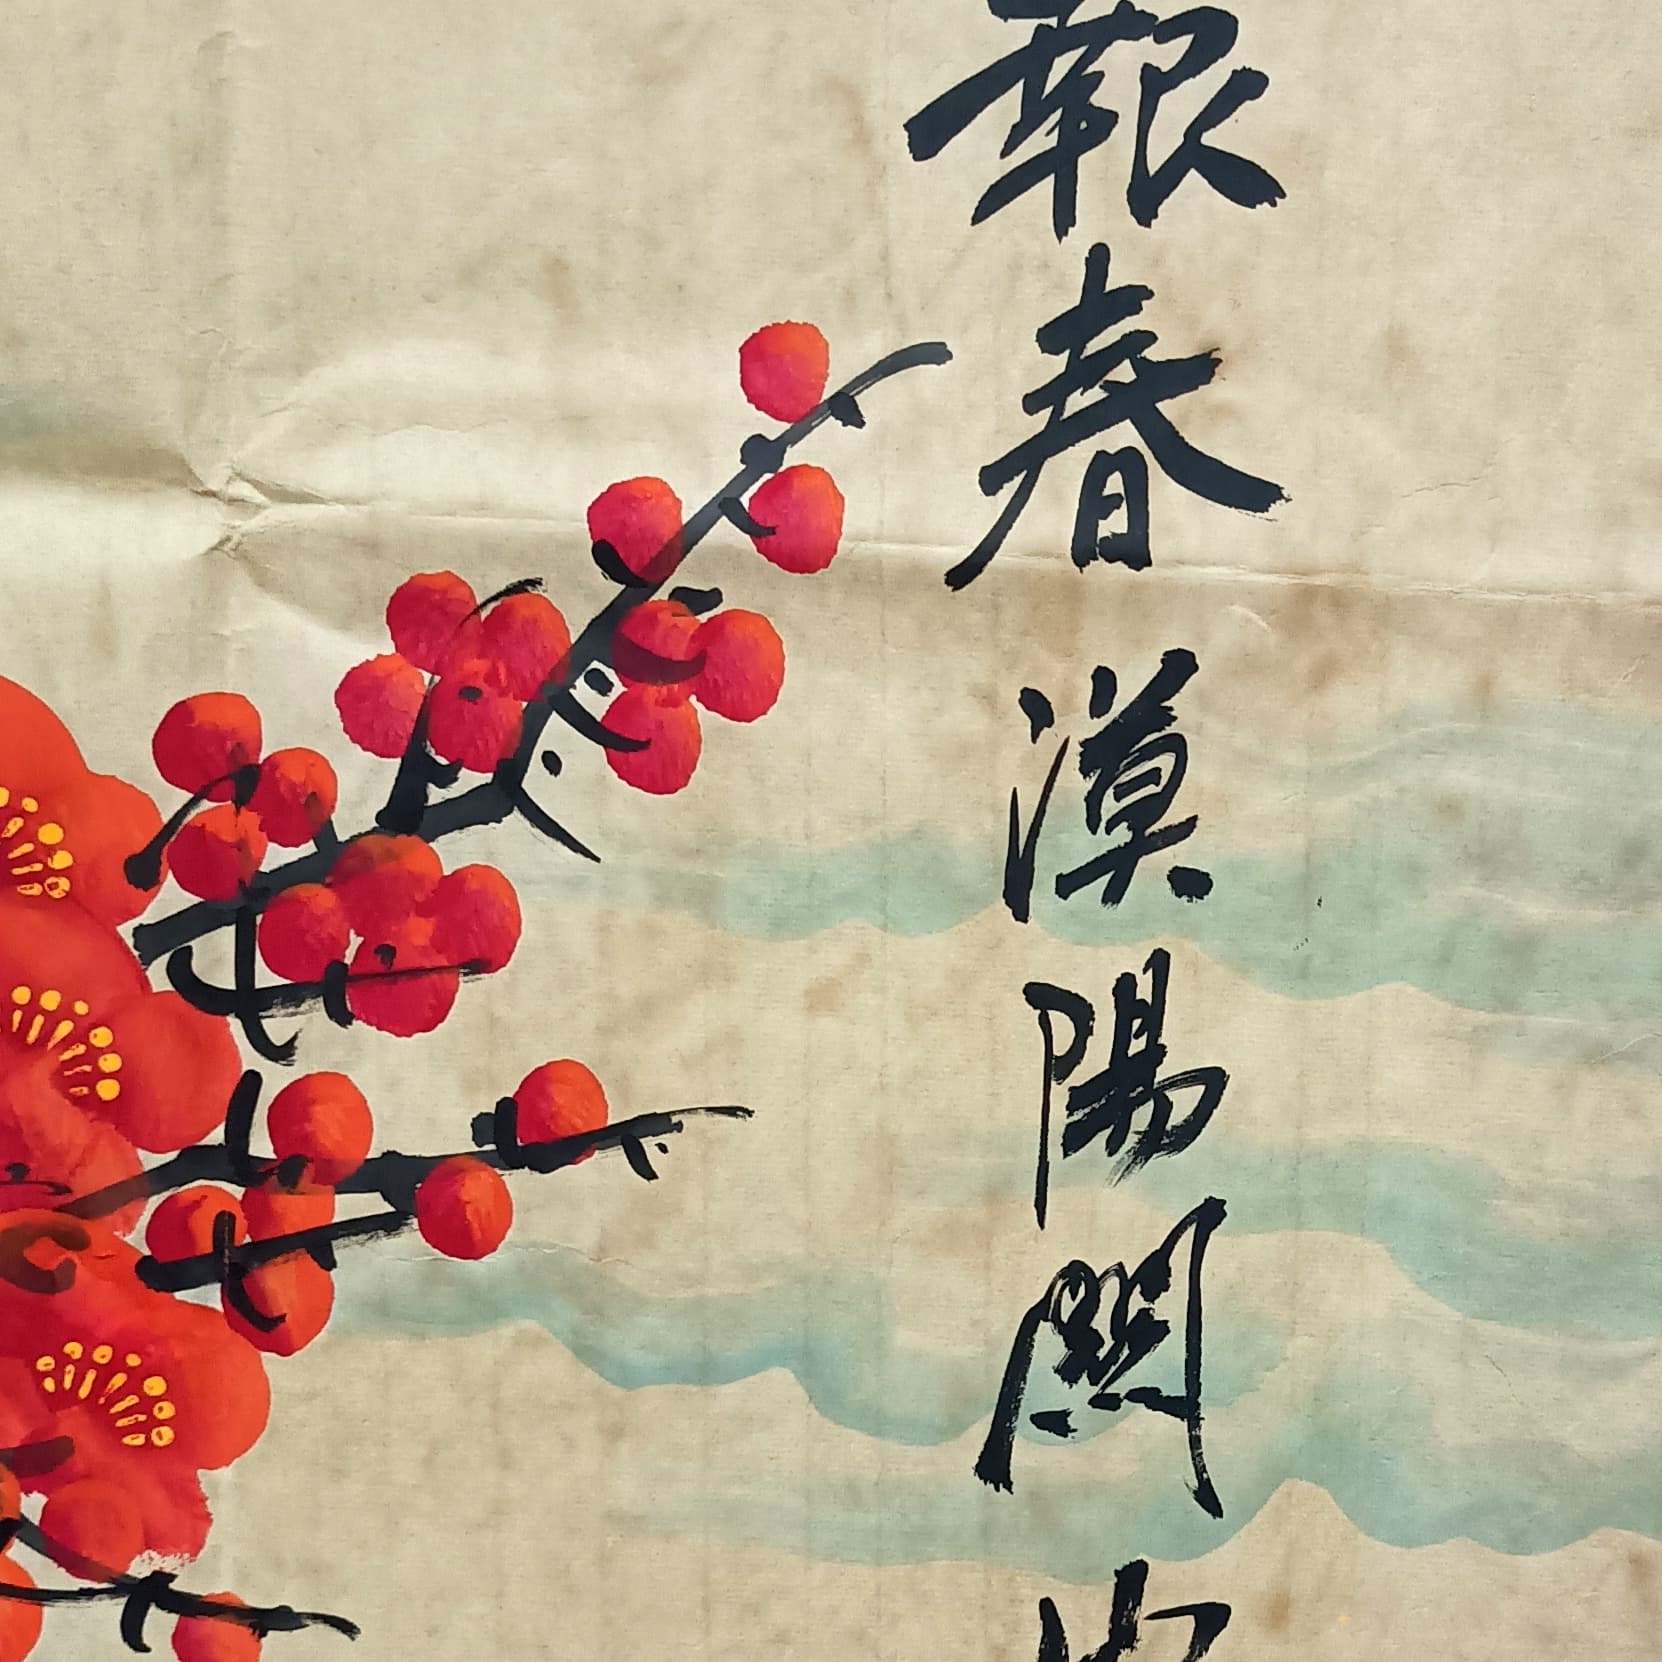 報春漠陽關山